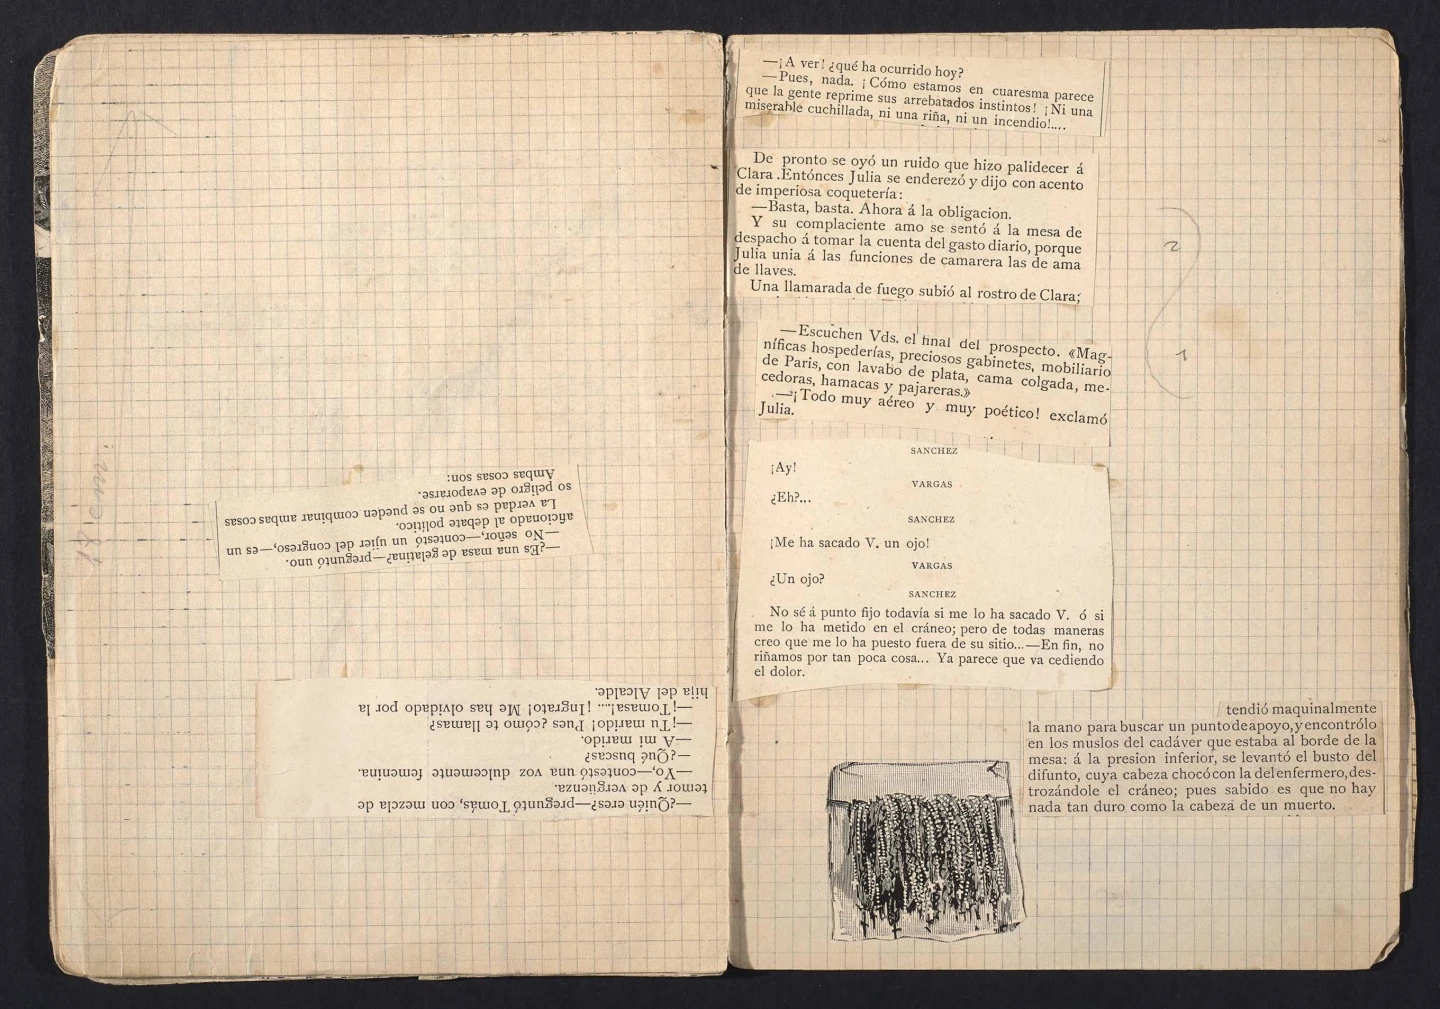 —¿Es una masa de gelatina?—preguntó uno.
—No señor,—contestó un ujier del congreso,—es un
aficionado al debate político.
La verdad es que no se pueden combinar ambas cosas
so peligro de evaporarse.
Ambas cosas son:
—¿Quién eres?—preguntó Tomás, con mezcla de
temor y de vergüenza.
—Yo,—contestó una voz dulcemente femenina.
—¿Qué buscas?
—A mi marido.
—¡Tu marido! Pues ¿cómo te llamas?
—¡Tomasa!... ¡Ingrato! Me has olvidado por la
hija del Alcalde.
18 cm.
—¡A ver! ¿qué ha ocurrido hoy?
—Pues, nada. ¡Cómo estamos en cuaresma parece
que la gente reprime sus arrebatados instintos! ¡Ni una
miserable cuchillada, ni una riña, ni un incendio!....
De pronto se oyó un ruido que hizo palidecer á
Clara .Entónces Julia se enderezó y dijo con acento
de imperiosa coquetería:
—Basta, basta. Ahora á la obligacion.
Y su complaciente amo se sentó á la mesa de
despacho á tomar la cuenta del gasto diario, porque
Julia unia á las funciones de camarera las de ama
de llaves.
Una llamarada de fuego subió al rostro de Clara;
2
1
—Escuchen Vds. el final del prospecto. «Mag-
níficas hospederías, preciosos gabinetes, mobiliario
de Paris, con lavabo de plata, cama colgada, me-
cedoras, hamacas y pajareras.»
—¡Todo muy aéreo y muy poético! exclamó
Julia.
SANCHEZ
¡Ay!
VARGAS
¿Eh?...
SANCHEZ
¡Me ha sacado V. un ojo!
VARGAS
¿Un ojo?
SANCHEZ
No sé á punto fijo todavía si me lo ha sacado V. ó si
me lo ha metido en el cráneo; pero de todas maneras
creo que me lo ha puesto fuera de su sitio...—En fin, no
riñamos por tan poca cosa... Ya parece que va cediendo
el dolor.
tendió maquinalmente
la mano para buscar un punto de apoyo, y encontrólo
en los muslos del cadáver que estaba al borde de la
mesa: á la presion inferior, se levantó el busto del
difunto, cuya cabeza chocó con la del enfermero, des-
trozándole el cráneo; pues sabido es que no hay
nada tan duro como la cabeza de un muerto.